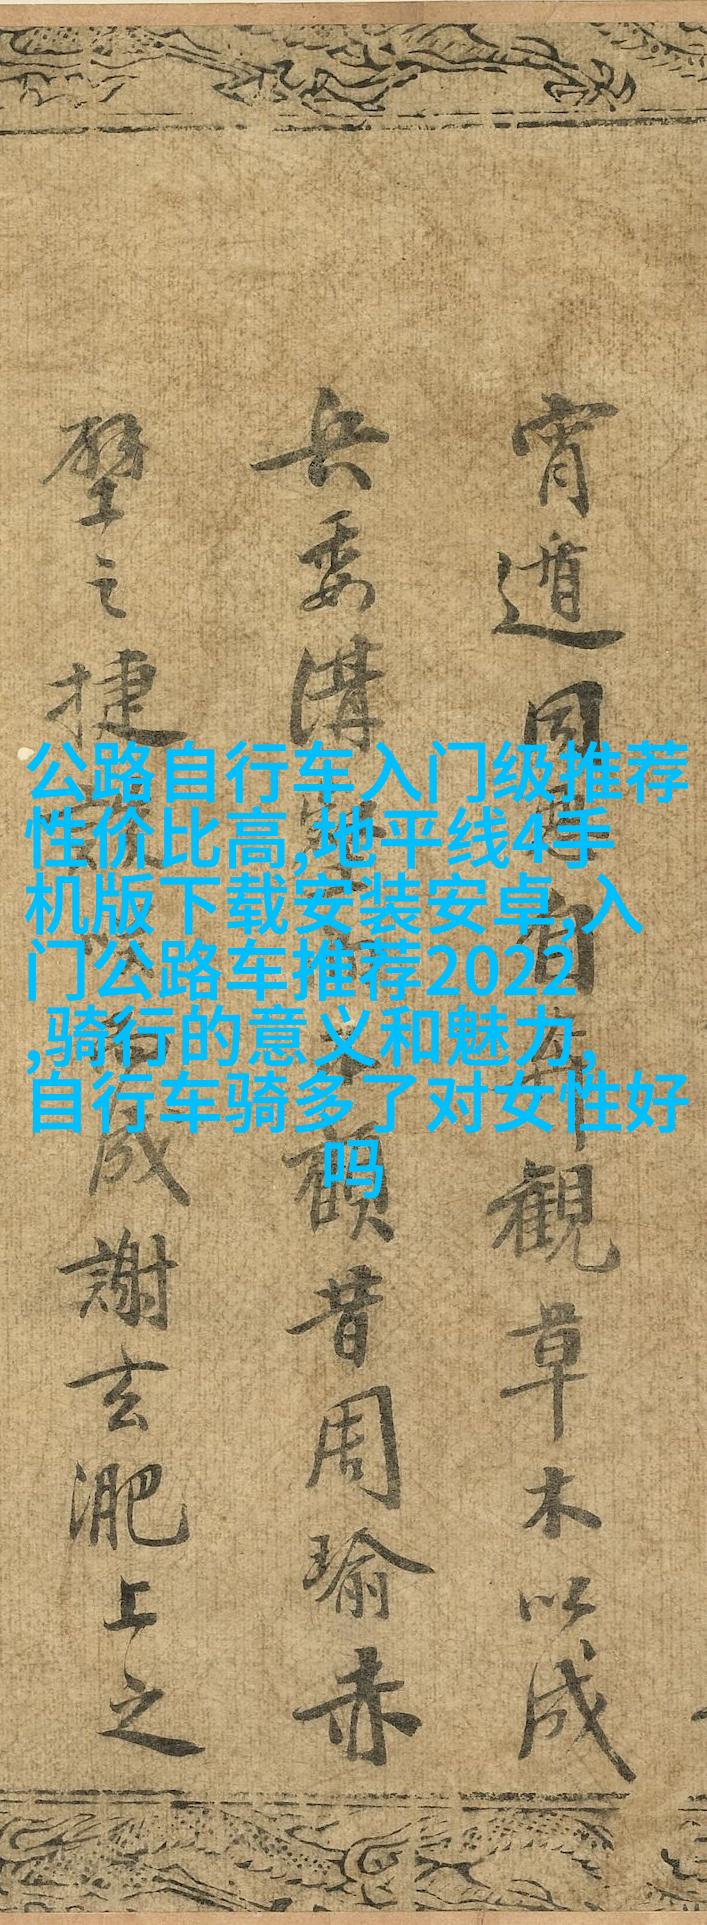 宵遁觀草木以成
兵委溝顧昔周瑜赤
壁之捷談成謝玄淝上之
公路自行车入门级推荐
性价比高,地平线4手
机版下载安装安卓,入
门公路车推荐2022
,骑行的意义和魅力,
自行车骑多了对女性好
吗